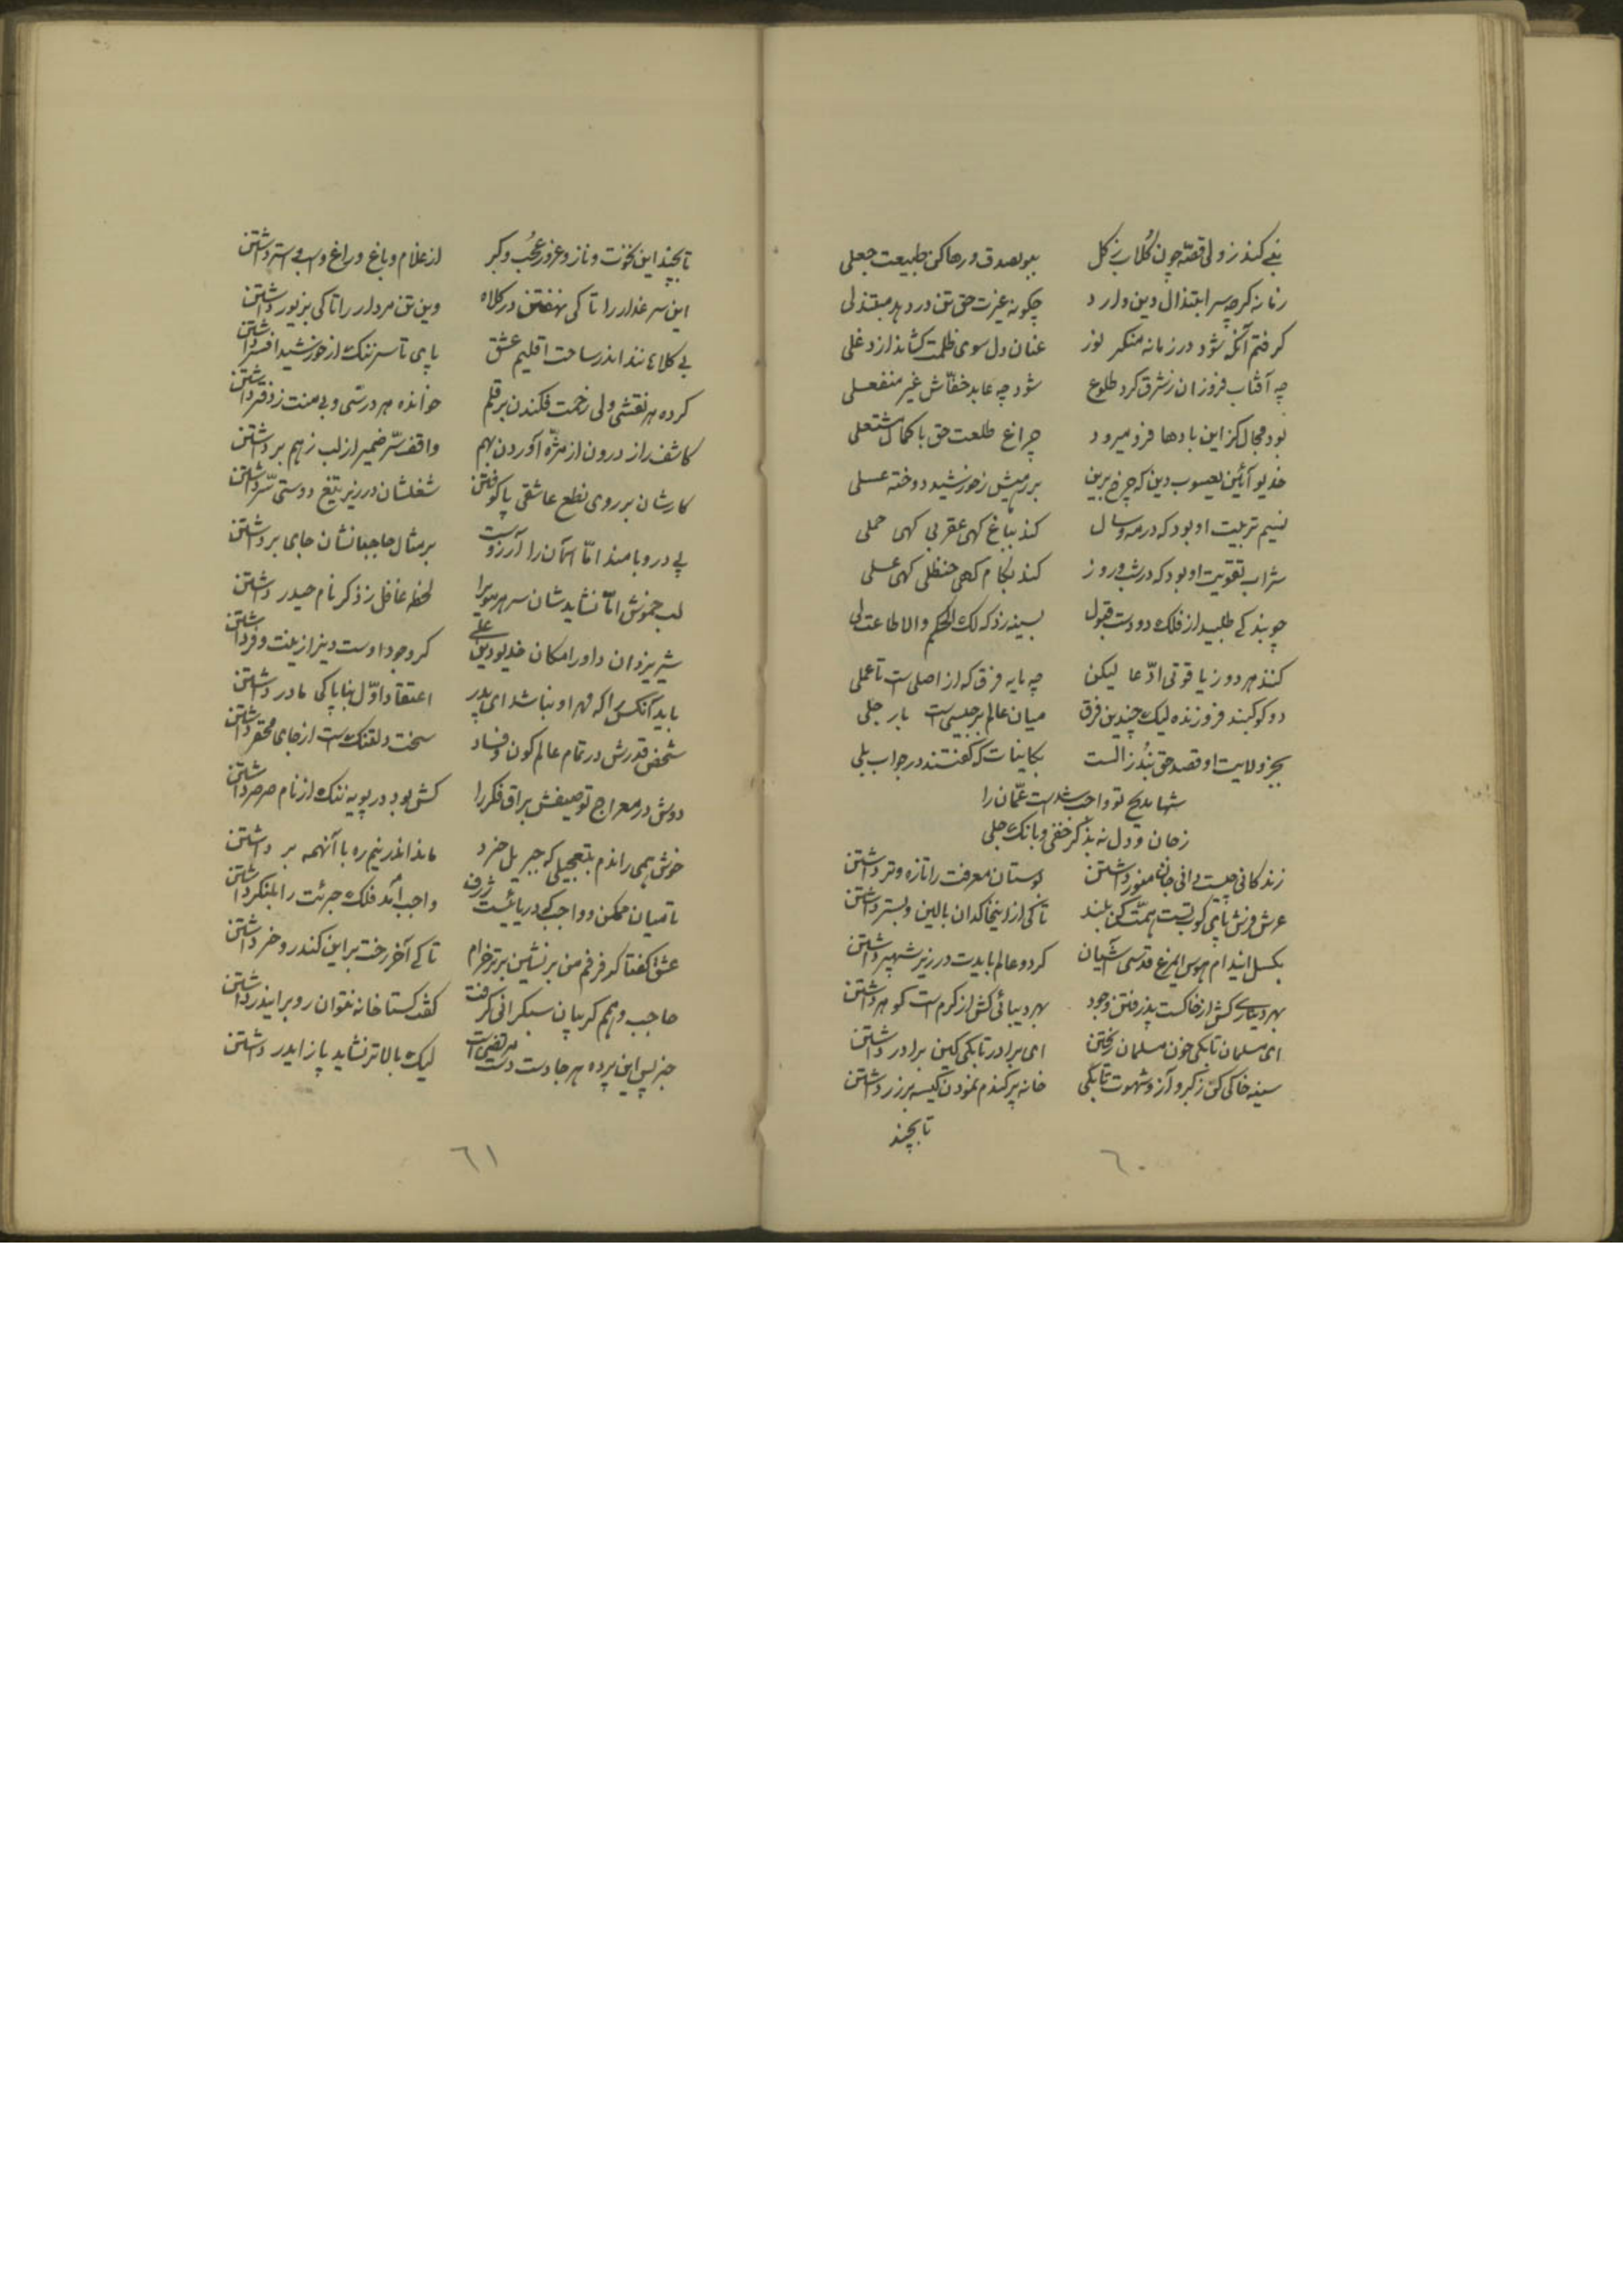 نبی کند ز ولی قصه چون گلاب ز گل ببو بصدق و رها کن طبیعت جعلی
زمانه گرچه سر ابتذال دین دارد چگونه غیرت حق تن دردهد مبتذلی
گرفتم آنکه شود در زمانه منکر نور عنان دل سوی ظلمت کشاند از دغلی
چه آفتاب فروزان ز شرق کرد طلوع شود چه عاید خفّاش غیر منفعلی
بود مجال کز این بادها فرو میرد چراغ طلعت حق با کمال مشتعلی
خدیو آئین یعسوب دین که چرخ برین بر رمیش ز خورشید دوخته عسلی
نسیم تربیت او بود که در مه و سال کند بباغ کهی عقربی کهی حملی
شراب تقویت او بود که در شب و روز کند بکام کهی حنظلی کهی عسلی
چو بیند کی طلبید از فلک دو دست قبول بسینه زد که لک الحکم والاطاعت لی
کنند هر دو ز یاقوتی ادّعا لیکن چه مایه فرق که از اصلی است تا عملی
دو کوکبند فروزنده لیک چندین فرق میان عالم برجیسی است با زحلی
بجز ولایت او قصد حق نبُد ز الست بکاینات که گفتند در جواب بلی
شها مدیح تو واجب شدست عمّان را
ز جان و دل نه بذکر خفی و بانک جلی
زندگانی چیست دانی جان منور داشتن بوستان معرفت را تازه و تر داشتن
عرش فرش پای کوب تست همّت کن بلند تا کی از این خاکدان بالین و بستر داشتن
بگسل این دام هوس ای مرغ قدسی آشیان گر دو عالم بایدت در زیر شهپر داشتن
بهر دیناری کش از خاکست پذرفتن وجود بهر دیبائی کش از کرم است گوهر داشتن
ای مسلمان تا بکی خون مسلمان ریختن ای برادر تا بکی کین برادر داشتن
سینه خالی کن ز کبر و آز و شهوت تا بکی خانه پر گندم نمودن کیسه پر زر داشتن
تا بچند
٦٠
تا بچند این نخوت و ناز و غرور و عُجب و کبر از غلام و باغ و راغ و اسب و استر داشتن
این سر غدار را تا کی نهفتن در کلاه وین تن مردار را تا کی بزیور داشتن
بی کلاهانند اندر ساحت اقلیم عشق پای تا سر ننگ از خورشید افسر داشتن
کرده هر نقشی ولی زحمت فکندن بر قلم خوانده هر درسی و بی منت ز دفتر داشتن
کاشف راز درون از مژه آوردن بهم واقف سّر ضمیر از لب ز هم برداشتن
کارشان بر روی نطع عاشقی پا کوفتن شغلشان در زیر تیغ دوستی سر داشتن
بی در و بامند امّا آسمان را آرزوست بر مثال حاجبانشان جای بر در داشتن
لب خموش امّا نشاید شان سر موئی را لحظه غافل ز ذکر نام حیدر داشتن
شیر یزدان داور امکان خدیو دین علی کز وجود اوست دین از زینت و فر داشتن
باید آنکس را که مهر او نباشد ای پدر اعتقاد اوّل بناپاکی مادر داشتن
شخص قدرش در تمام عالم کون و فساد سخت دلتنک است از جای محقر داشتن
دوش در معراج توصیفش براق فکر را کش بود در پویه ننگ از نام صرصر داشتن
خوش همی راندم بتعجیلی که جبریل خرد ماند اندر نیم ره با آنهمه پر داشتن
تا میان ممکن و واجب یکی دریاست ژرف واجب آمد فلک جرئت را بلنگر داشتن
عشق گفتا کز فرخم من بر نشین برتر خرام تا کی آخر رخت بر این کندرو خر داشتن
حاجب وهمم گریبان سبک رانی گرفت گفت گستاخانه نتوان رو بر ایندر داشتن
جز پس این پرده هر جا دست دست مرتضی است لیک بالاتر نشاید پا ز ایدر داشتن
٦١